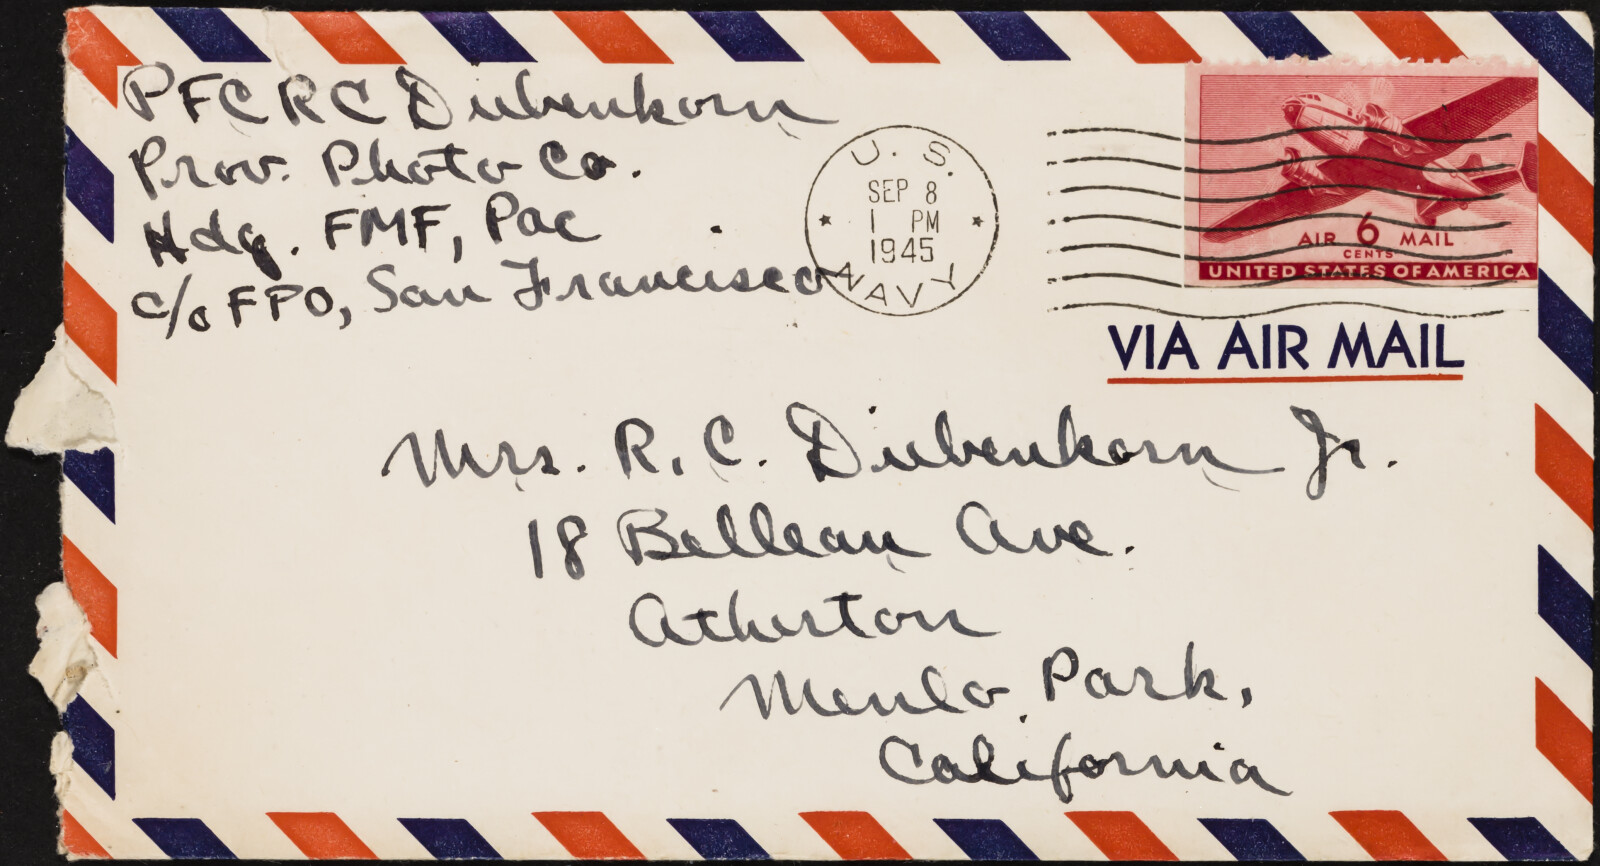 PFC RC Diebenkorn
Prov. Photo Co.
Hdq. FMF, Pac
c/o FPO, San Francisco
U. S.
SEP 8
1 PM
1945
NAVY
AIR 6 MAIL
CENTS
UNITED STATES OF AMERICA
VIA AIR MAIL
Mrs. R. C. Diebenkorn Jr.
18 Belleau Ave.
Atherton
Menlo Park,
California